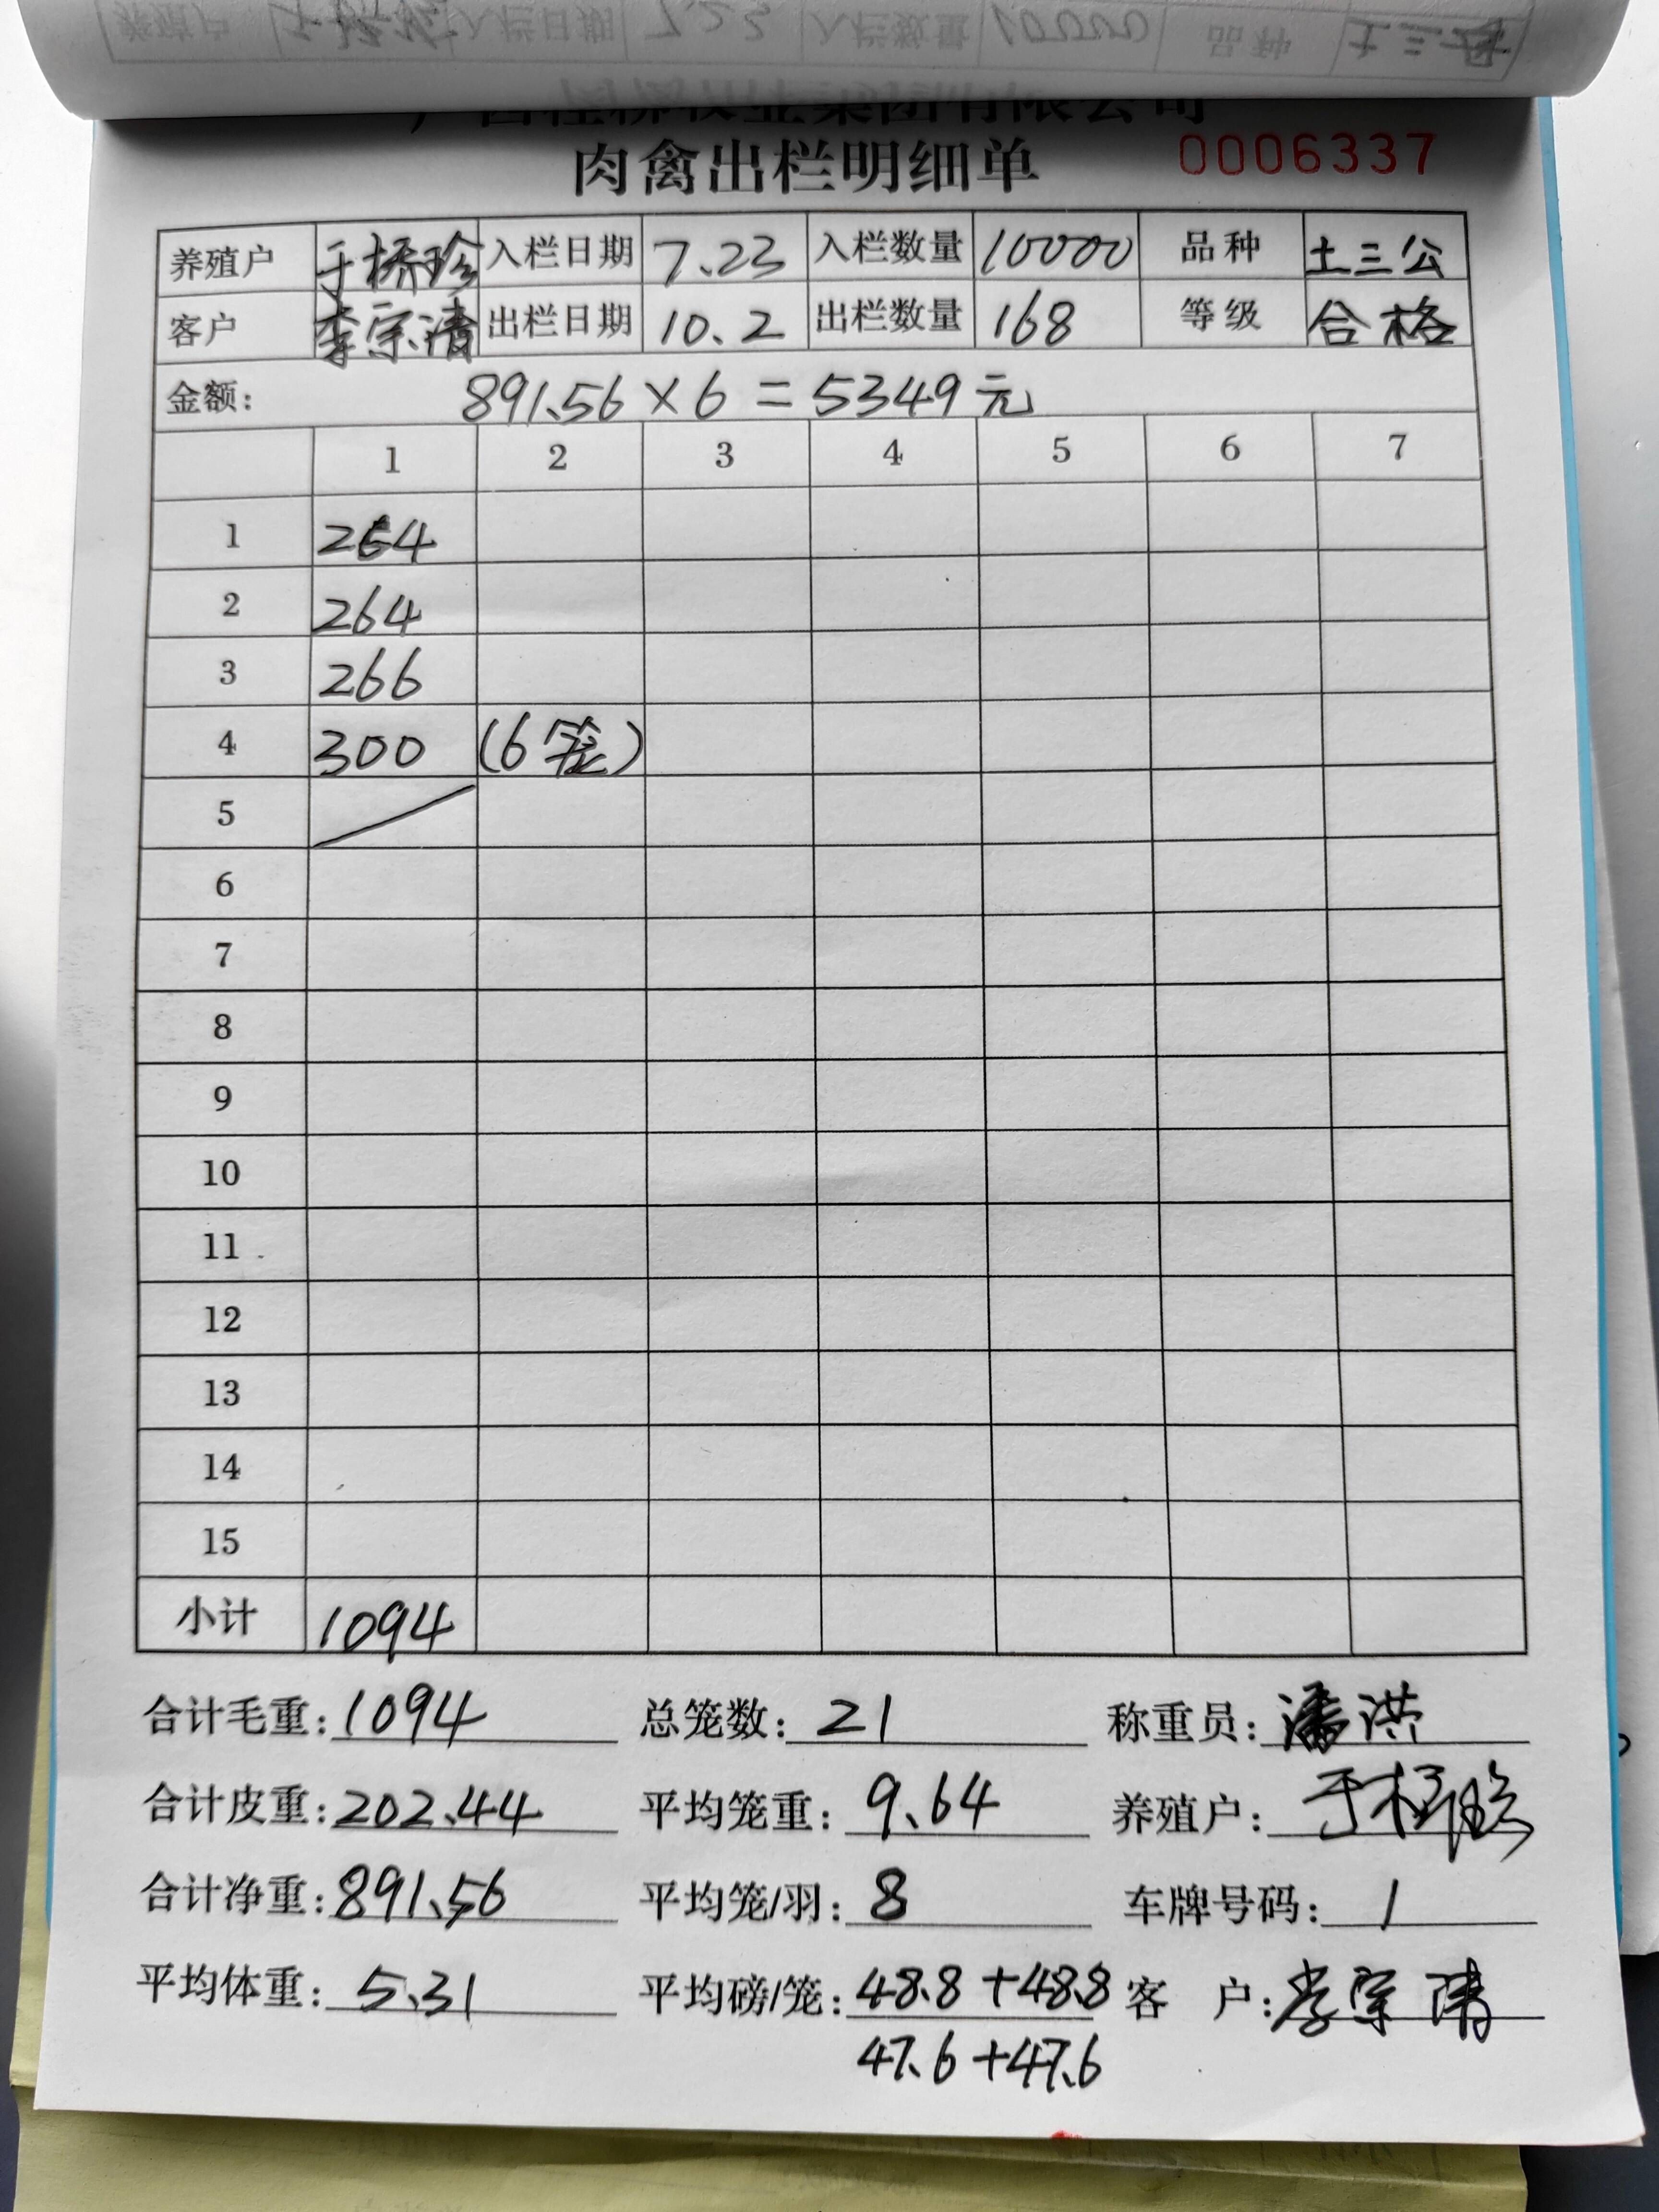 集团有限公司
肉禽出栏明细单 0006337
养殖户 于桥珍 入栏日期 7.23 入栏数量 10000 品种 土三公
客户 李宗清 出栏日期 10.2 出栏数量 168 等级 合格
金额: 891.56×6=5349元
1 2 3 4 5 6 7
1 264
2 264
3 266
4 300 (6笼)
5
6
7
8
9
10
11
12
13
14
15
小计 1094
合计毛重:1094 总笼数:21 称重员:潘洪
合计皮重:202.44 平均笼重:9.64 养殖户:于桥珍
合计净重:891.56 平均笼/羽:8 车牌号码:1
平均体重:5.31 平均磅/笼:48.8+48.8 客 户:李宗清
47.6+47.6